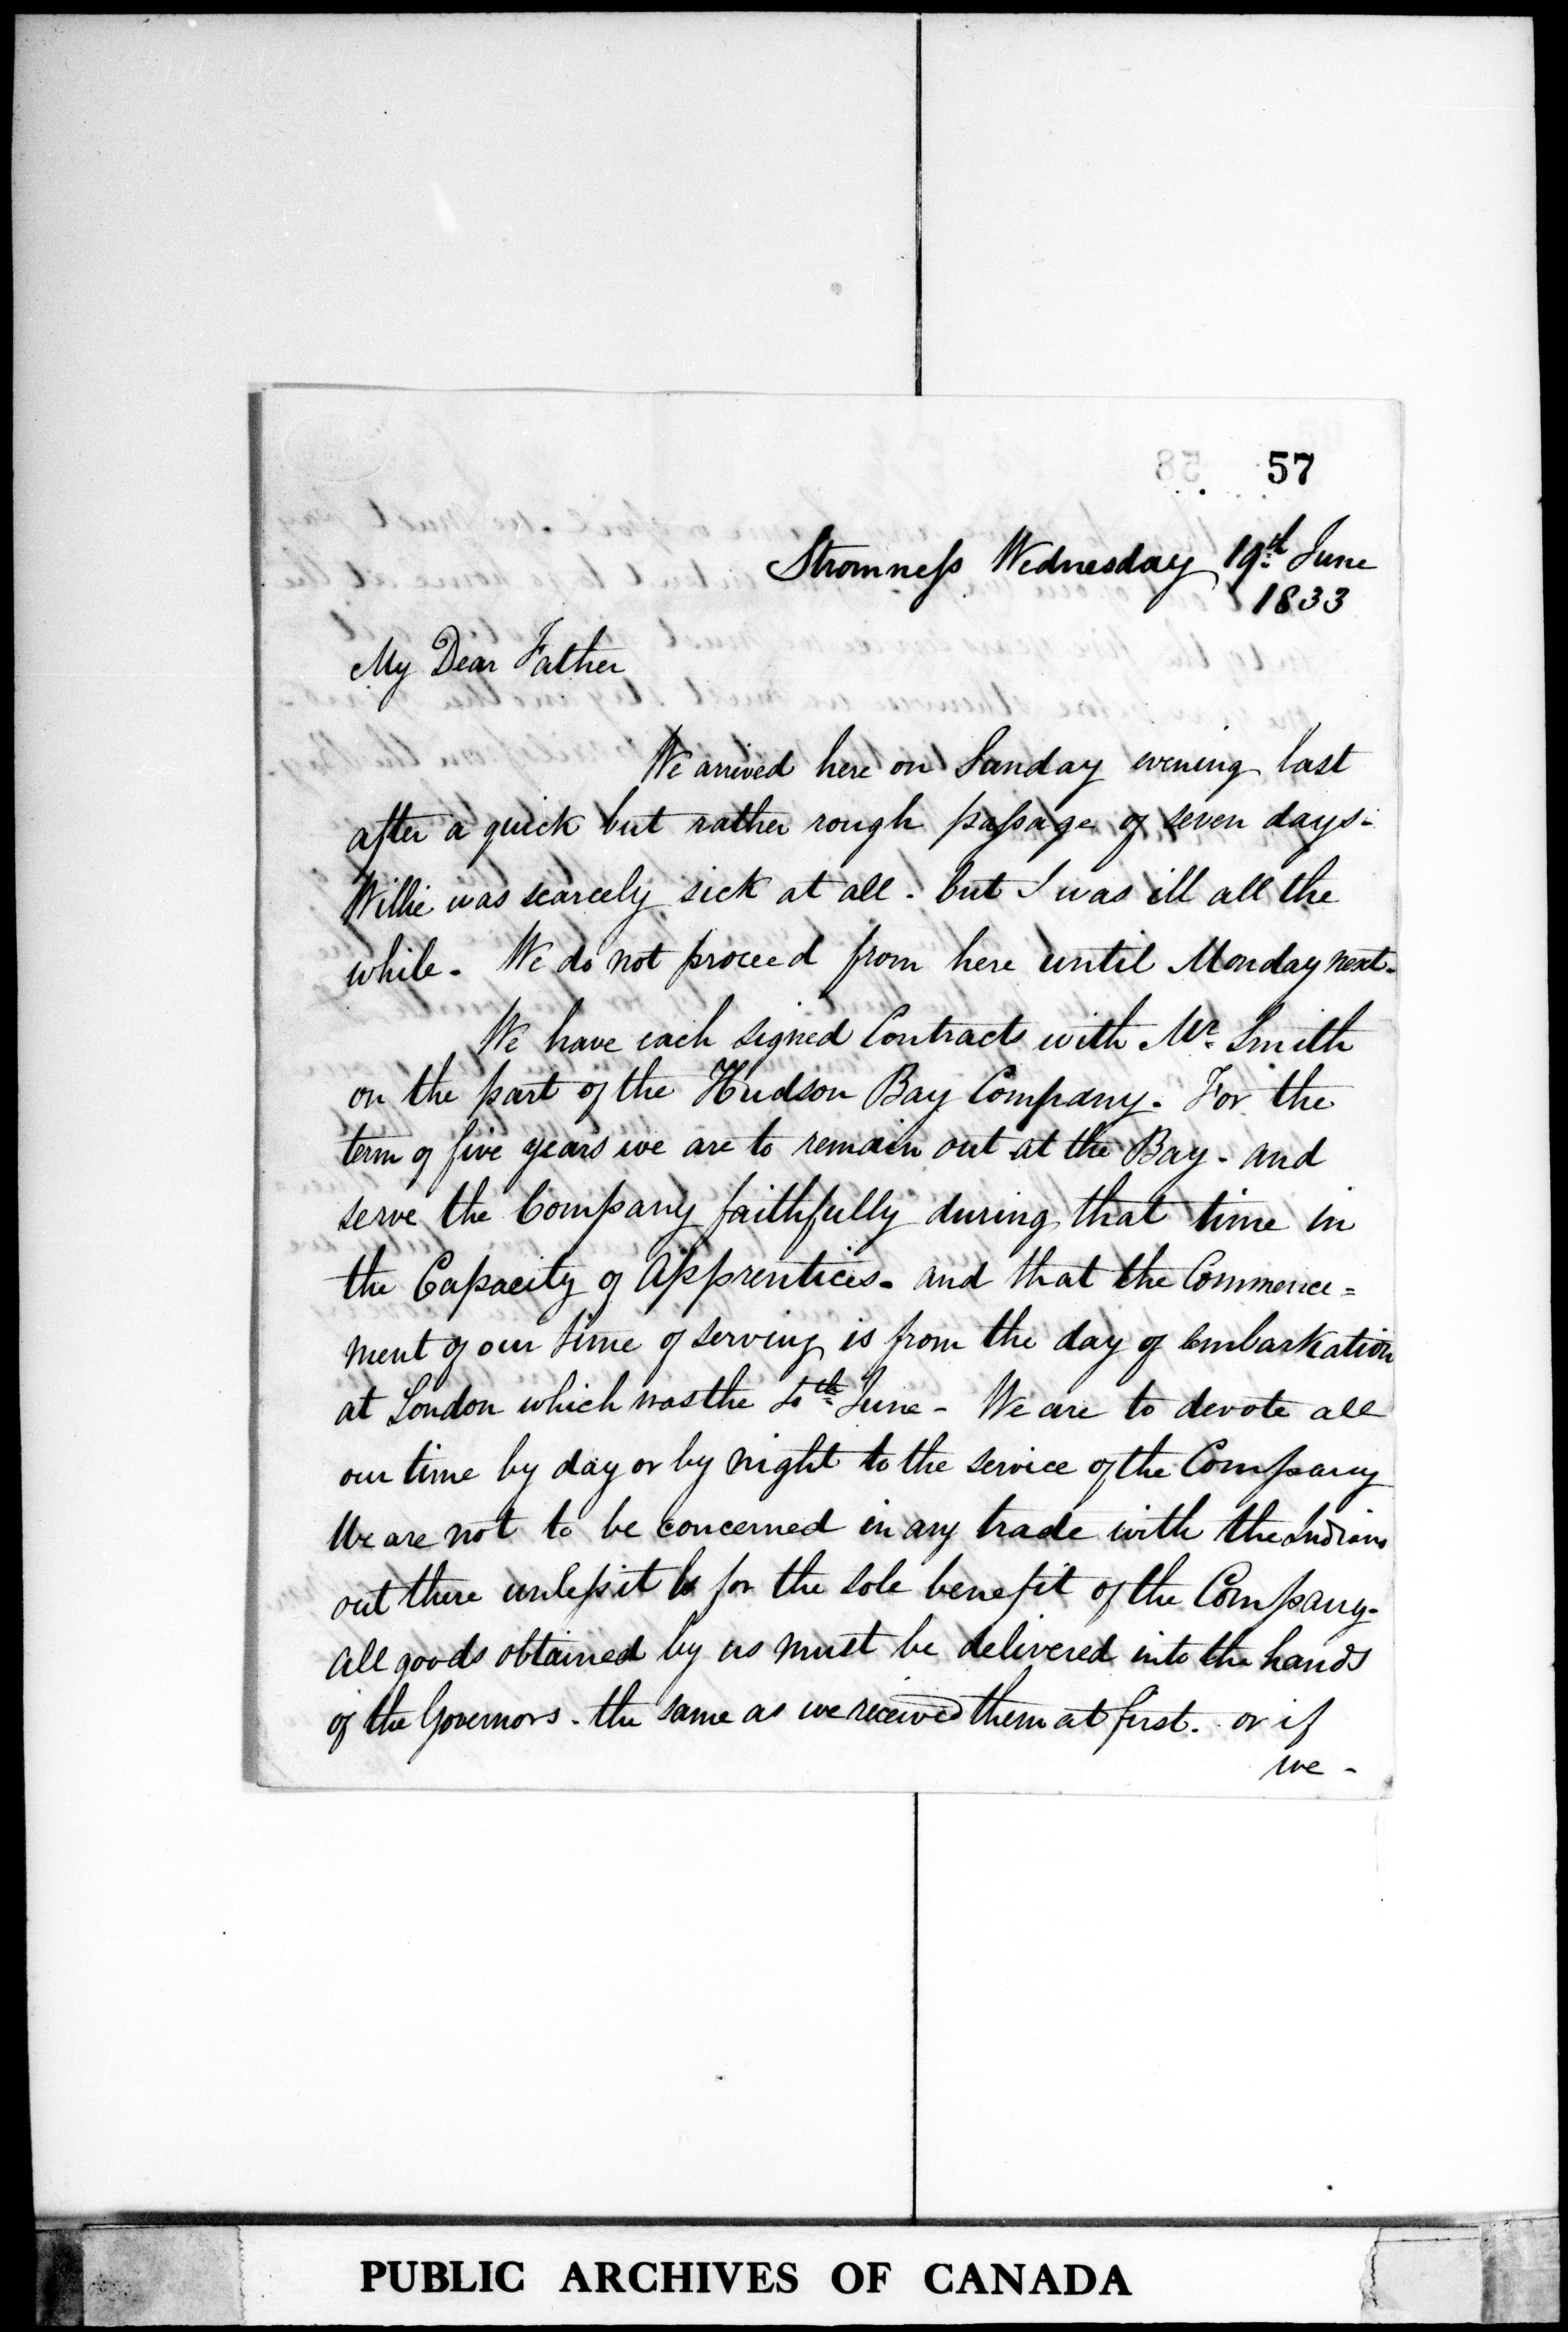 57
58
Stromness Wednesday 19th June
1833
My Dear Father
We arrived here on Sunday evening last
after a quick but rather rough passage of seven days-
Willie was scarcely sick at all. but I was ill all the
while. We do not proceed from here until Monday next.
We have each signed Contracts with Mr Smith
on the part of the Hudson Bay Company. For the
term of five years we are to remain out at the Bay. and
serve the Company faithfully during that time in
the Capacity of Apprentices. and that the Commence=
ment of our time of serving is from the day of embarkation
at London which was the June - We are to devote all
our time by day or by night to the service of the Company
We are not to be concerned in any trade with the Indians
out there unless it is for the sole benefit of the Company.
All goods obtained by us must be delivered into the hands
of the Governors. the same as we received them at first. or if
we -
PUBLIC ARCHIVES OF CANADA